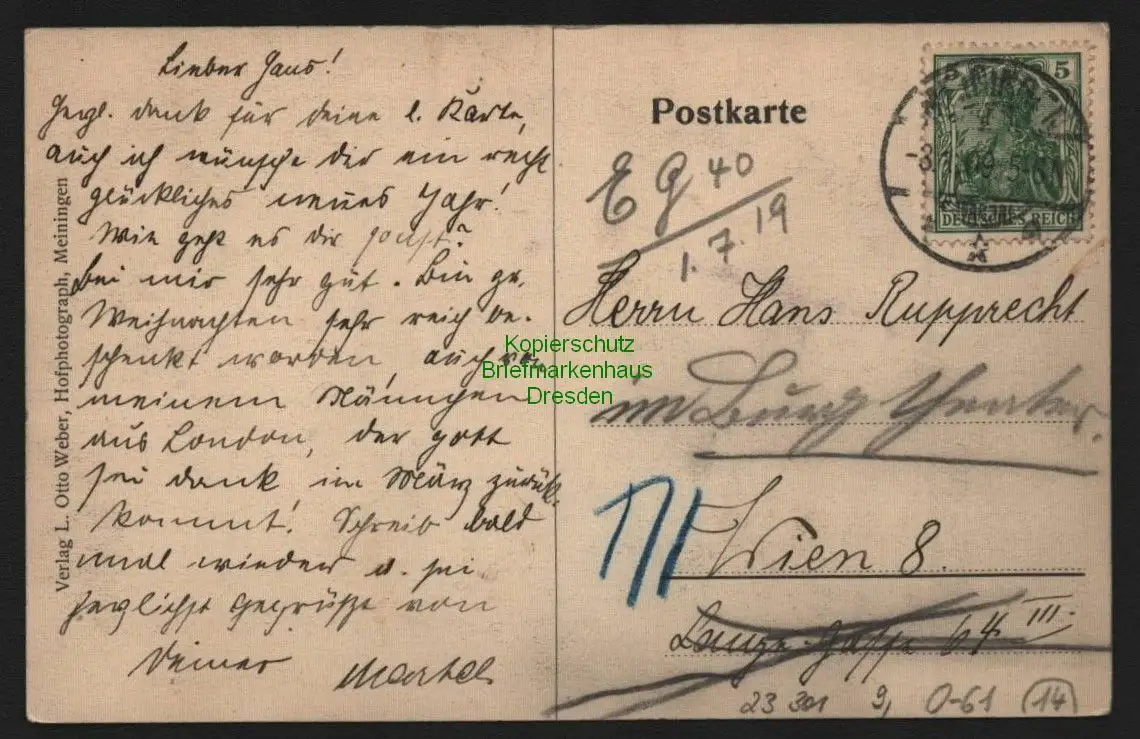 Lieber Hans!
Herzl. dank für deine l. Karte,
auch ich wünsche dir ein recht
glückliches neues Jahr!
Wie geht es dir sonst?
Bei mir sehr gut. Bin zu
Weihnachten sehr reich be-
schenkt worden, auch von
meinem Männchen
aus London, der gott
sei dank im März zurück
kommt! Schreib bald
mal wieder u. sei
herzlichst gegrüßt von
deiner
Verlag L. Otto Weber, Hofphotograph, Meiningen
Postkarte
5
DEUTSCHES REICH
E G 40
1. 7. 19
Herrn Hans Rupprecht
Kopierschutz
Briefmarkenhaus
Dresden
im Burg theater.
Wien 8.
Lange Gasse 64 III.
23 301 9, 0-61 (14)